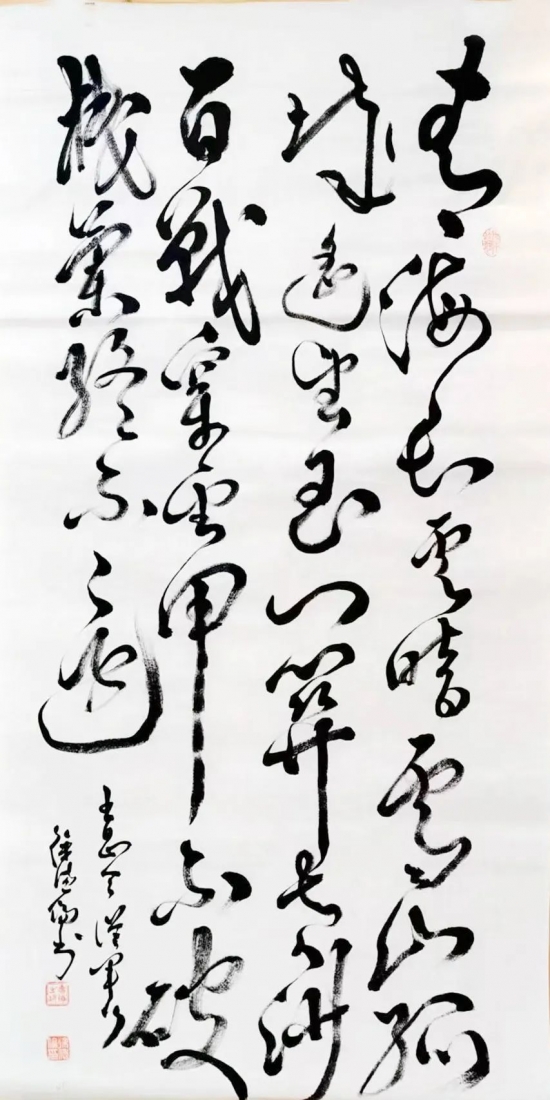 青海長雲暗雪山孤
城遙望玉門關黄沙
百戰穿金甲不破
樓蘭終不還
王昌令從軍行
書